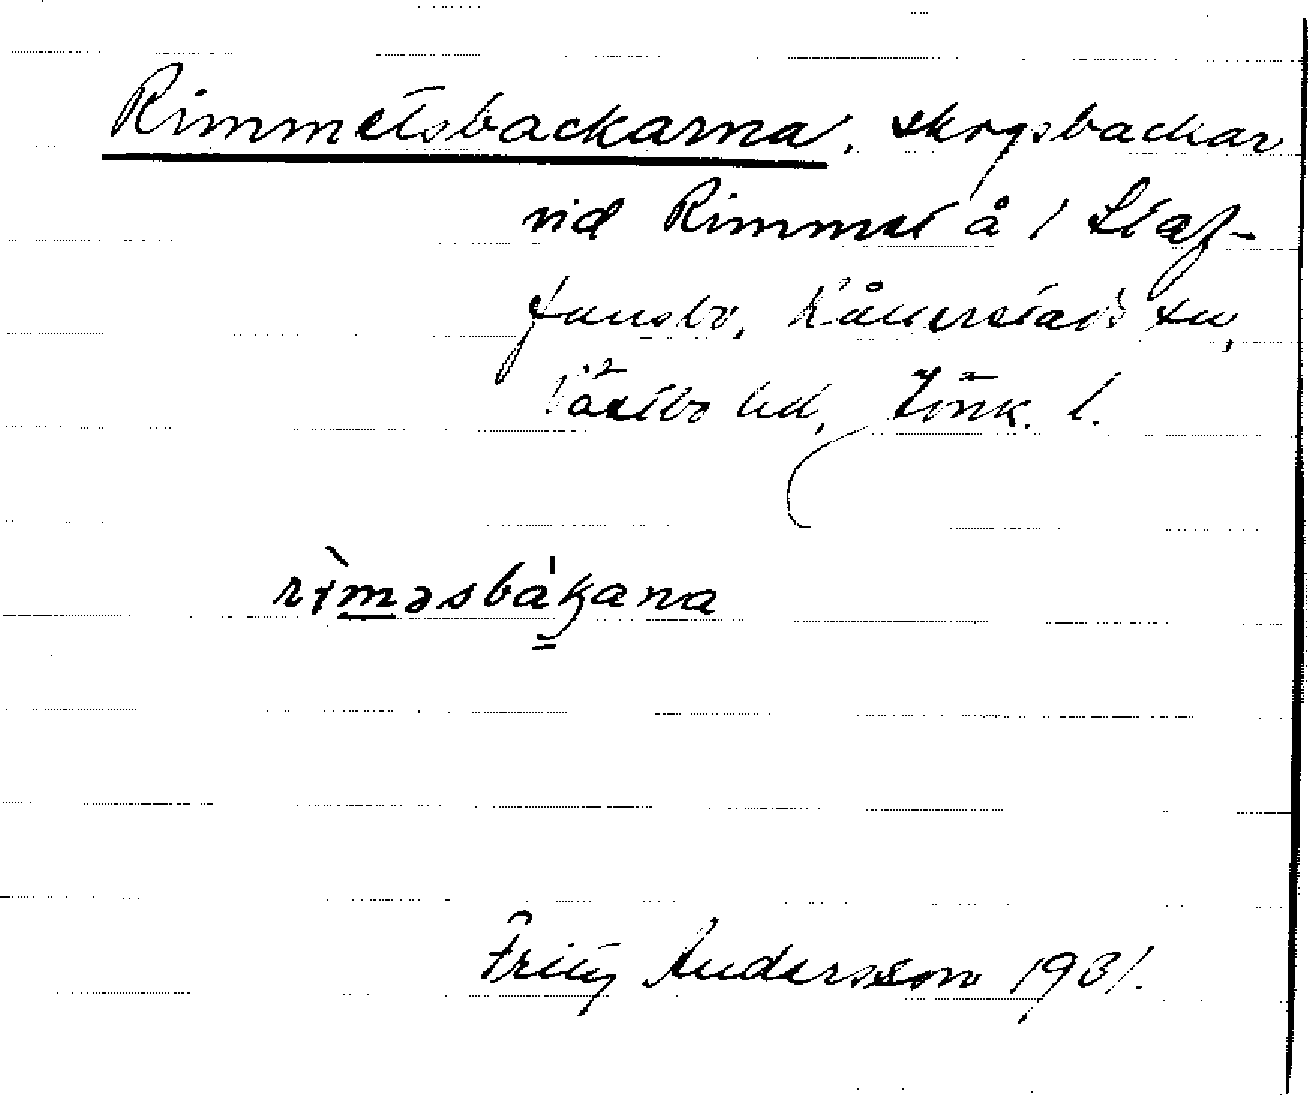 Rimmetsbackarna, skogsbackar
vid Rimmet å i Staf-
fansbo, Kållerstads sn,
Västbo hd, Jönk. l.
rìməsbákana
Fritz Andersson 1931.